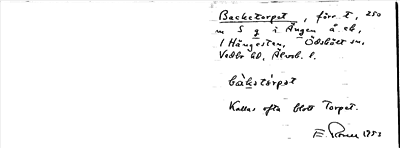 Backetorpet, förr t, 250
m S g i Ängen å. ek,
1 Hängesten, Ödsbölt sn,
Vedbo hd, Älvsb. l.
bàkstórpət
Kallas ofta blott Torpet.
E. 1953